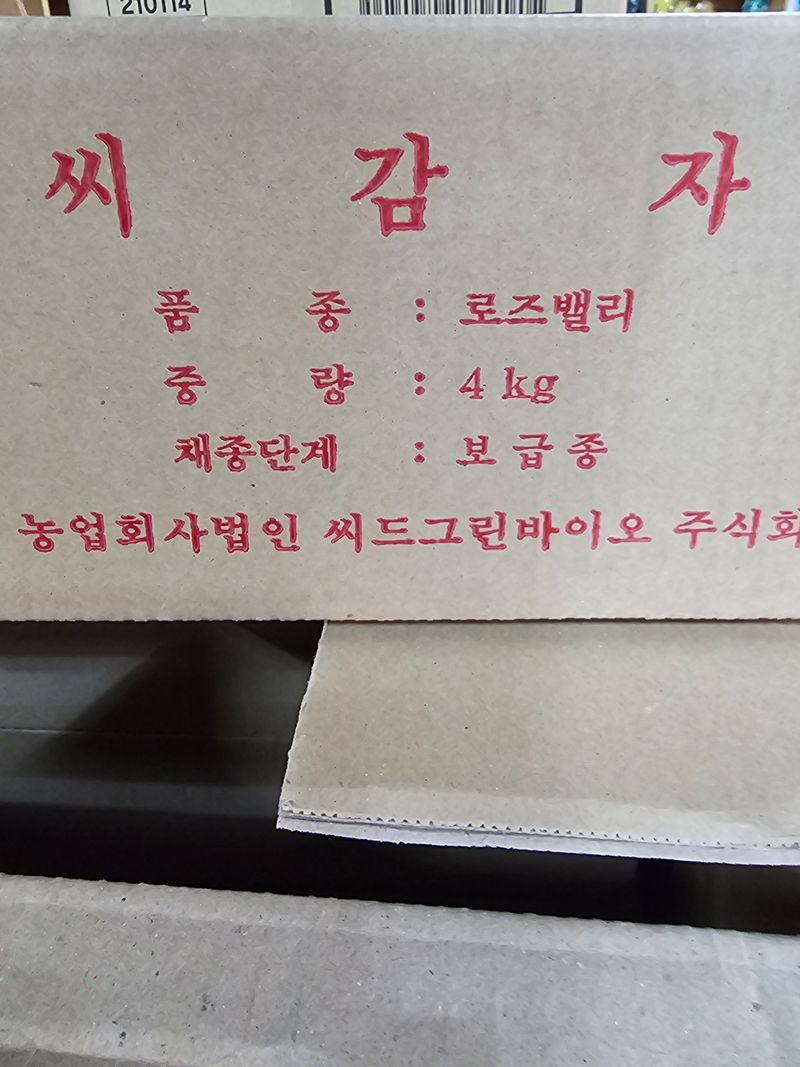 210114
씨 감 자
품 종 : 로즈밸리
중 량 : 4 kg
채종단계 : 보급종
농업회사법인 씨드그린바이오 주식회